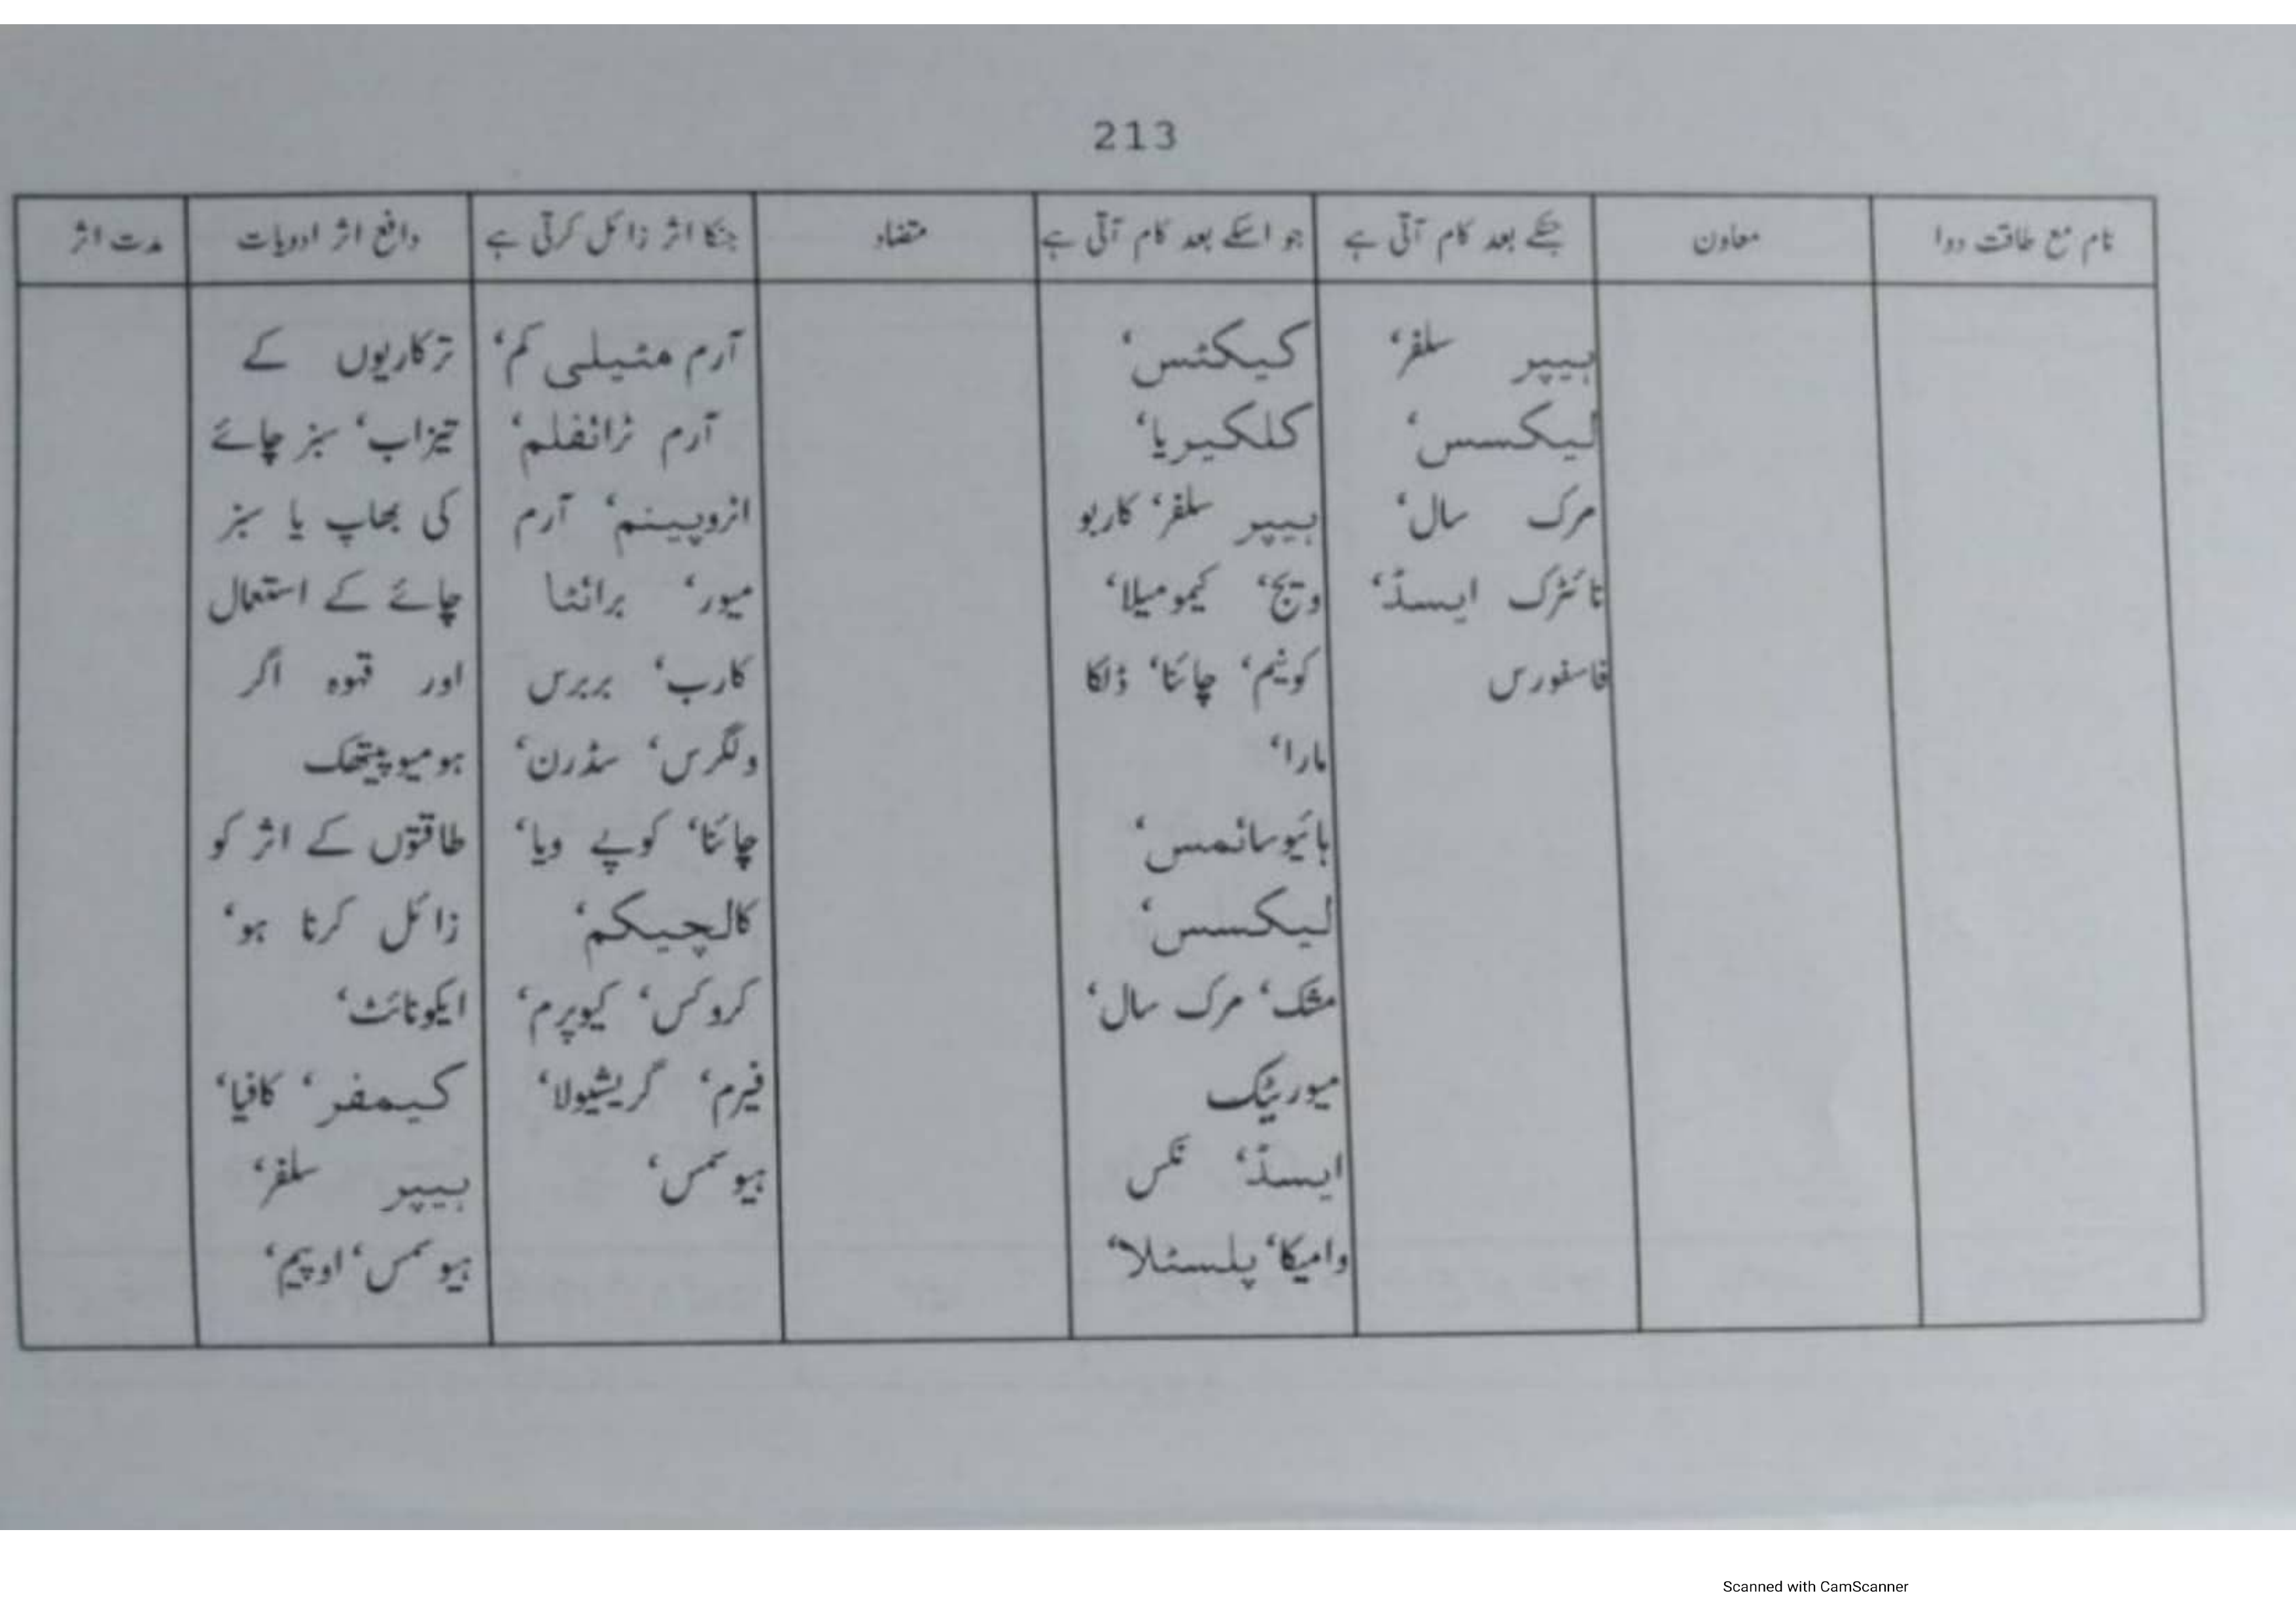 213
نام مع طاقت دوا
معاون
جسکے بعد کام آتی ہے
جو اسکے بعد کام آتی ہے
متضاد
جنکا اثر زائل کرتی ہے
دافع اثر ادویات
مدت اثر
ہیپر سلفر‘
لیکسس‘
مرک سال‘
نائٹرک ایسڈ‘
فاسفورس
کیکٹس‘
کلکیریا‘
ہیپر سلفر‘ کاربو
ویج‘ کیمومیلا‘
کونیم‘ چائنا‘ ڈلکا
مارا‘
ہائیوسائمس‘
لیکسس‘
مشک‘ مرک سال‘
میورٹیک
ایسڈ‘ نکس
وامیکا‘ پلسٹلا‘
آرم مٹیلی کم‘
آرم ٹرائفلم‘
اٹروپینم‘ آرم
میور‘ برائٹا
کارب‘ بربرس
ولگرس‘ سڈرن‘
چائنا‘ کوپے ویا‘
کالچیکم‘
کروکس‘ کیوپرم‘
فیرم‘ گریشیولا‘
ہیوسمس‘
ترکاریوں کے
تیزاب‘ سبز چائے
کی بھاپ یا سبز
چائے کے استعمال
اور قہوہ اگر
ہومیوپیتھک
طاقتوں کے اثر کو
زائل کرنا ہو‘
ایکونائٹ‘
کیمفر‘ کافیا‘
ہیپر سلفر‘
ہیوسمس‘ اوپیم‘
Scanned with CamScanner